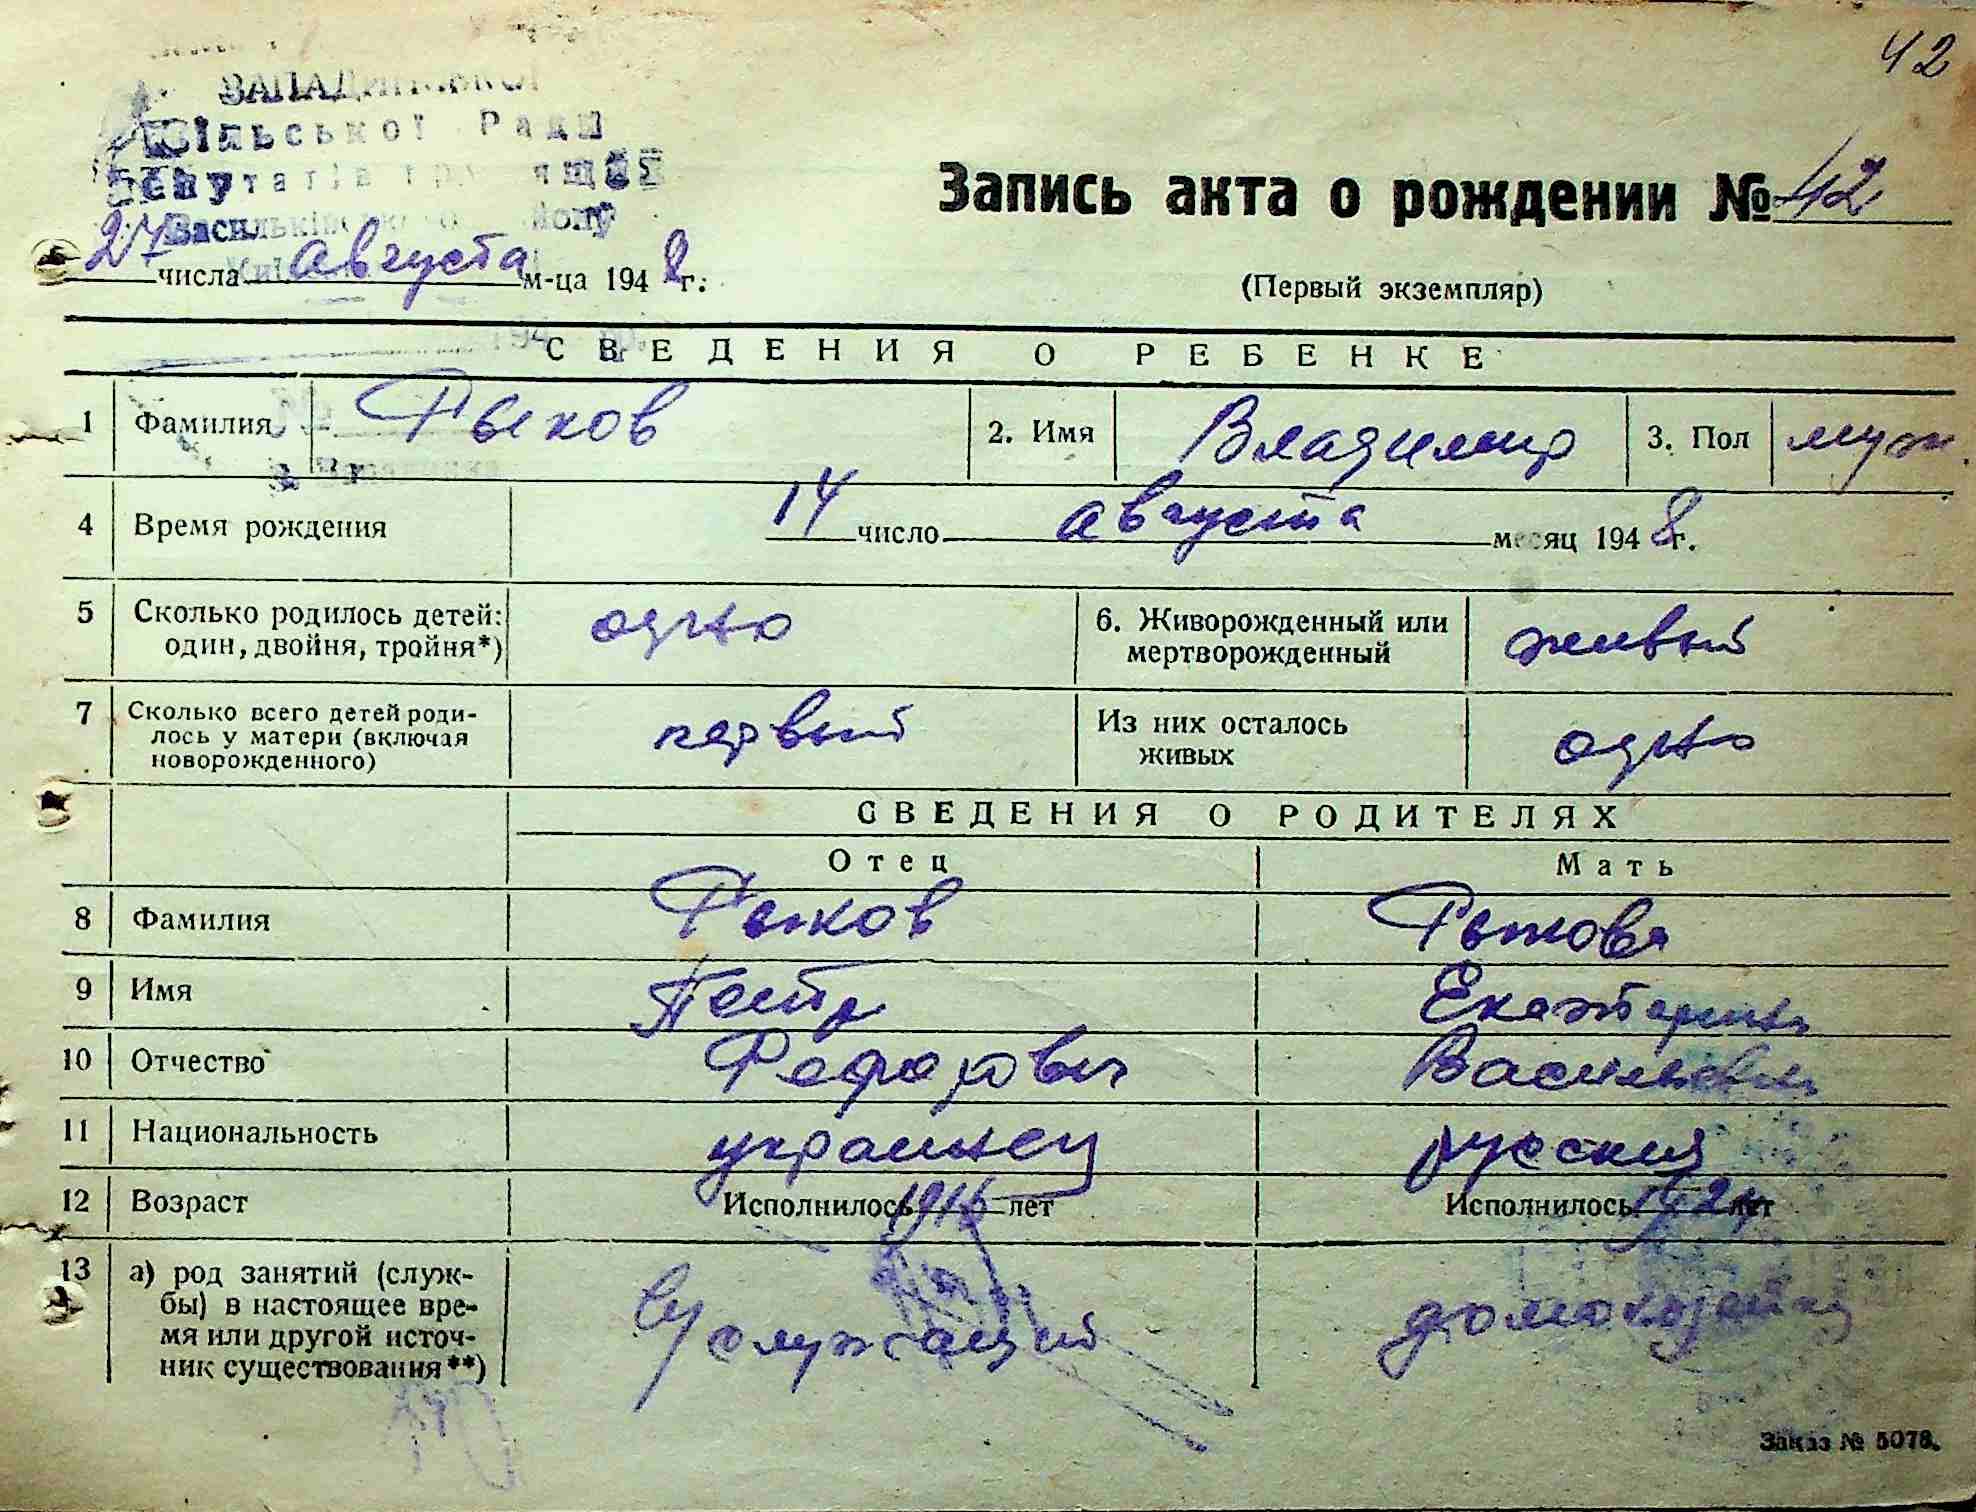 42
сільської Ради
Запись акта о рождении № 42
27 числа августа м-ца 1948 г.
(Первый экземпляр)
СВЕДЕНИЯ О РЕБЕНКЕ
1 Фамилия Рыков 2. Имя Владимир 3. Пол муж.
4 Время рождения 14 число августа месяц 1948 г.
5 Сколько родилось детей: одно 6. Живорожденный или живый
один, двойня, тройня*) мертворожденный
7 Сколько всего детей роди- первый Из них осталось одно
лось у матери (включая живых
новорожденного)
СВЕДЕНИЯ О РОДИТЕЛЯХ
Отец Мать
8 Фамилия Рыков Рыкова
9 Имя Петр Екатерина
10 Отчество Васильевна
11 Национальность украинец русская
12 Возраст Исполнилось 1916 лет Исполнилось лет
13 а) род занятий (служ-
бы) в настоящее вре- служащий домохозяйка
мя или другой источ-
ник существования**)
Заказ № 5078.